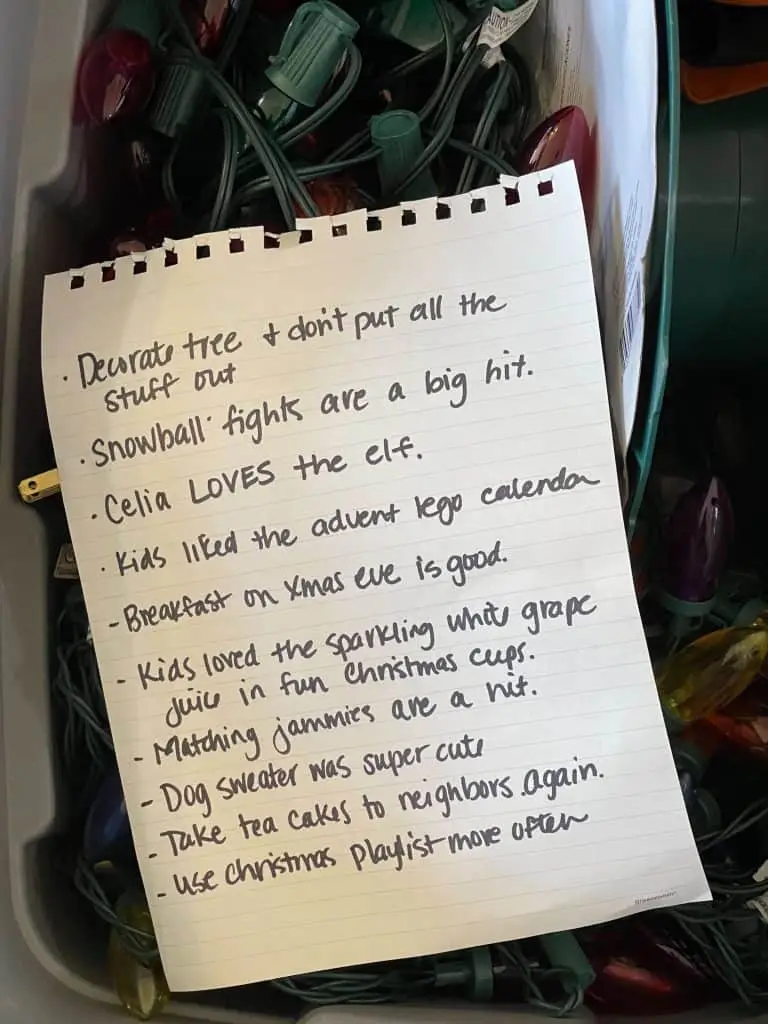 · Decorate tree + don't put all the
stuff out
· Snowball fights are a big hit.
· Celia LOVES the elf.
· Kids liked the advent lego calendar
- Breakfast on Xmas eve is good.
- Kids loved the sparkling white grape
juice in fun Christmas cups.
- Matching jammies are a hit.
- Dog sweater was super cute
- Take tea cakes to neighbors again.
- Use Christmas playlist more often